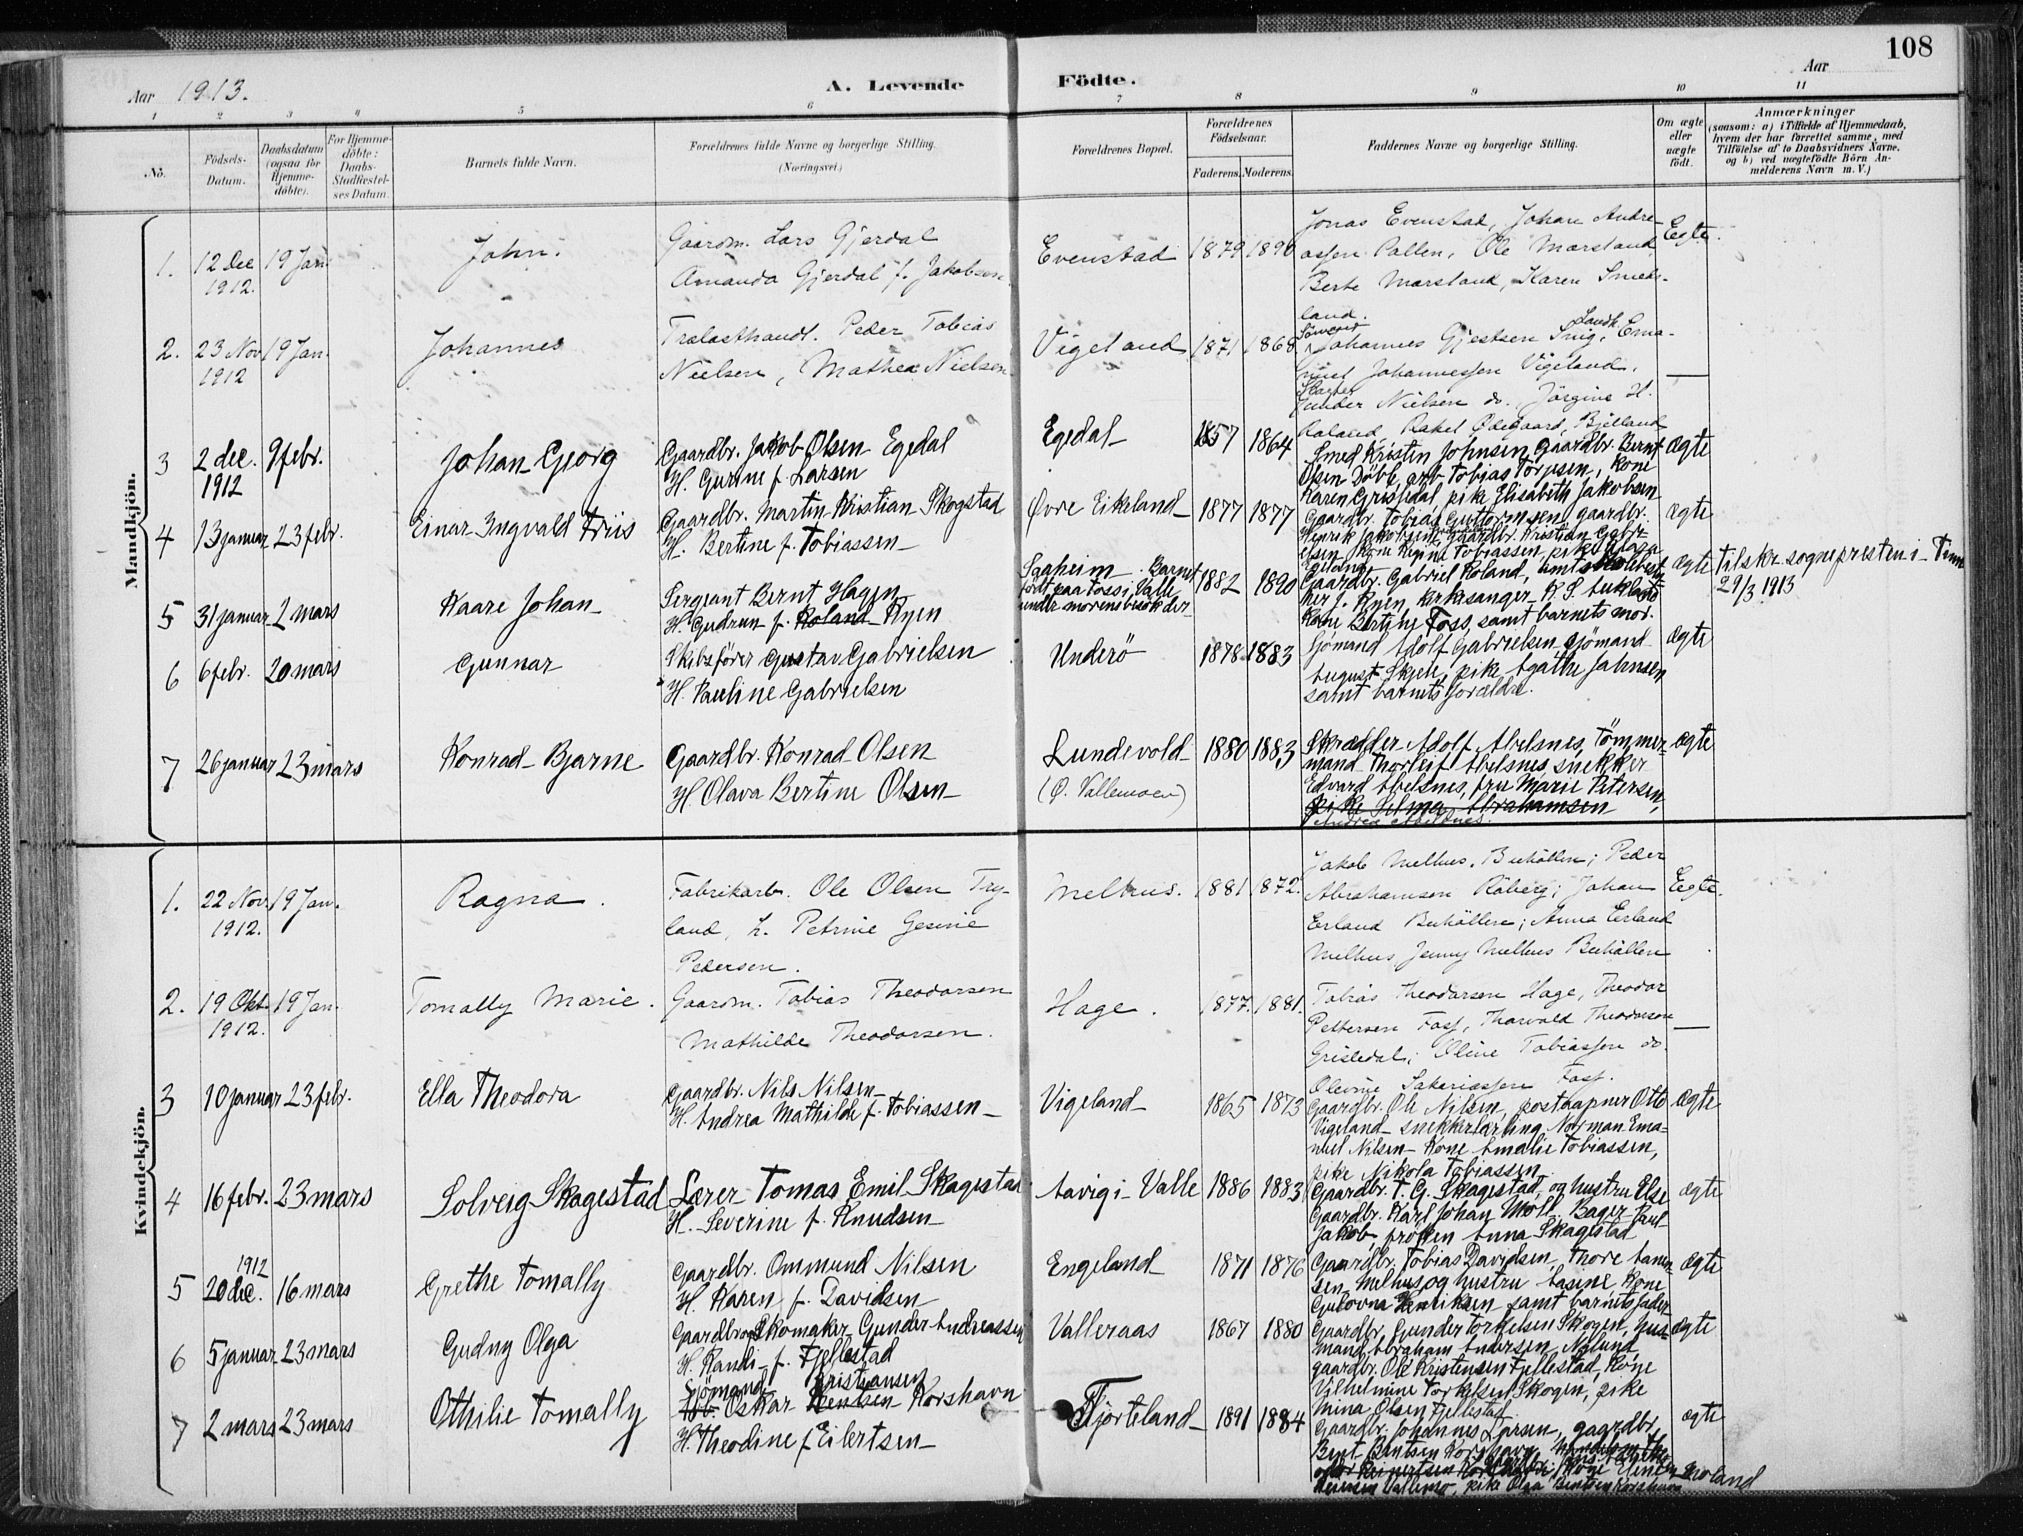 108
Aar 1913.
A. Levende Födte.
Aar
1 2 3 4 5 6 7 8 9 10 11
No.
Födsels-Datum.
Daabsdatum (ogsaa for Hjemme-döbte).
For Hjemme-döbte: Daabs-Stadfæstel-ses Datum.
Barnets fulde Navn.
Forældrenes fulde Navne og borgerlige Stilling.
(Næringsvei.)
Forældrenes Bopæl.
Forældrenes Födselsaar.
Faderens. Moderens.
Faddernes Navne og borgerlige Stilling.
Om ægte eller uægte födt.
Anmærkninger
(saasom: a) i Tilfælde af Hjemmedaab,
hvem der har forrettet samme, med
Tilföielse af to Daabsvidners Navne,
og b) ved uægtefödte Börn An-
melderens Navn m. V.)
Mandkjön.
1. 12 Dec 1912. 19 Jan
John.
Gaardm. Lars Gjerdal
Amanda Gjerdal f. Jakobsen
Evenstad 1879 1890
Jonas Evenstad, Johan Andre-
assen Pallen, Ole Marstand
Berte Marstand, Karen Smeds-
land.
Ægte.
2. 23 Nov 1912 19 Jan.
Johannes
Trælasthandl. Peder Tobias
Nielsen, Mathea Nielsen
Vigeland 1871 1868
Johannes Gjertsen Snig, Landh. Ema-
nuel Johannessen Vigeland,
Gunder Nielsen do. Jörgine H.
Roland, Rakel Ödegaard, Bjelland
—
3 2 dec. 1912 9 febr.
Johan Georg
Gaardbr. Jakob Olsen Egedal
H. Gurine f. Larsen
Egedal 1857 1864
Smed Kristin Johnsen, gaardbr. Bernt
Olsen Döble, arb. Tobias Torjesen, kone
Karen Grisledal, pike Elisabeth Jakobsen
ægte
4 13 januar 23 febr.
Einar Ingvald Friis
Gaardbr. Martin Kristian Skogstad
H. Bertine f. Tobiassen
Øvre Eikeland 1877 1877
Gaardbr. Tobias Guttormsen, gaardbr.
Henrik Jakobsen, gaardbr. Kristian Gabri-
elsen, kone Regine Tobiassen, pike
ægte
5 31 januar 2 mars
Kaare Johan
Sergeant Bernt Hagen
H. Gudrun f. Roland Ryen
Saaheim Barnet
født paa Foss i Valle
under morens besök der
1882 1890
Gaardbr. Gabriel Roland,
J. Ryen, kirkesanger K. S.
kone Bertine Foss, samt barnets mor.
ægte
Tilskr. sognepresten i Tinn
29/3 1913
6 6 febr. 20 mars
Gunnar
Skibsfører Gustav Gabrielsen
H. Pauline Gabrielsen
Underö 1878 1883
Sjömand Adolf Gabrielsen, sjömand
August Skjele, pike Agathe Jahnsen
samt barnets forældre.
ægte
7 26 januar 23 mars
Konrad Bjarne
Gaardbr. Konrad Olsen
H. Olava Bertine Olsen
Lundevold
(Ö. Vallemoen)
1880 1883
Skrædder Adolf Abelsnes, tömmer-
mand Thorleif Abelsnes, snekker
Edvard Abelsnes, fru Marie Petersen,
pike Selma Abrahamsen
Andrea Abelsnes.
ægte
Kvindekjön.
1. 22 Nov. 1912. 19 Jan.
Ragna.
Fabrikarb. Ole Olsen Try-
land, h. Petrine Gesine
Pedersen.
Melhus. 1881 1872.
Jakob Melhus, Buhöllen; Peder
Abrahamsen Röberg; Johan
Erland Buhöllen; Anna Erland
Melhus, Jenny Melhus Buhöllen
Ægte.
2. 19 Okt. 1912. 19 Jan.
Tomally Marie.
Gaardm. Tobias Theodorsen
Mathilde Theodorsen.
Hage. 1877. 1881.
Tobias Theodorsen Hage, Theodor
Pettersen Foss, Thorvald Theodorsen
Grisledal; Oline Tobiassen do.
Olevine Sakeriassen Foss.
—
3 10 januar 23 febr.
Ella Theodora
Gaardbr. Nils Nilsen
H. Andrea Mathilde f. Tobiassen
Vigeland 1865 1873
Gaardbr. Ole Nilsen, postaapner Otto
Vigeland, snekkerlærling Norman Ema-
nuel Nilsen, kone Amalie Tobiassen,
pike Nikola Tobiassen
ægte
4 16 febr. 23 mars
Solveig Skagestad
Lærer Tomas Emil Skagestad
H. Severine f. Knudsen
Aavig i Valle 1886 1883
Gaardbr. T. G. Skagestad, og hustru Else
Gaardbr. Karl Johan Moll, Bager Paul
Jakob, fröken Anna Skagestad
ægte
5 1912 20 dec. 16 mars
Grethe Tomally
Gaardbr. Ommund Nilsen
H. Karen f. Davidsen
Engeland 1871 1876
Gaardbr. Tobias Davidsen, Thore Aanen-
sen, Melhus og hustru Aasine, kone
Gulovna Henriksen samt barnets fader
ægte
6 5 januar 23 mars
Gudny Olga
Gaardbr og Skomaker Gunder Andreassen
H. Randi f. Fjellestad
Valleraas 1867 1880
Gaardbr. Gunder Torkelsen Skogen, hus-
mand Abraham Andersen Nylund
gaardbr. Ole Kristensen Fjellestad, kone
Vilhelmine Torkelsen Skogen, pike
Mina Olsen Fjellestad
ægte
7 2 mars 23 mars
Othilie Tomally
Sjömand Kristiansen
Oskar Bentsen Korshavn
H. Theodine f Eilertsen
Fjorteland 1891 1884
Gaardbr. Johannes Larsen, gaardbr.
Bent Bentsen Korshavn,
Vallemo, pike Olga Bentsen Korshavn
ægte